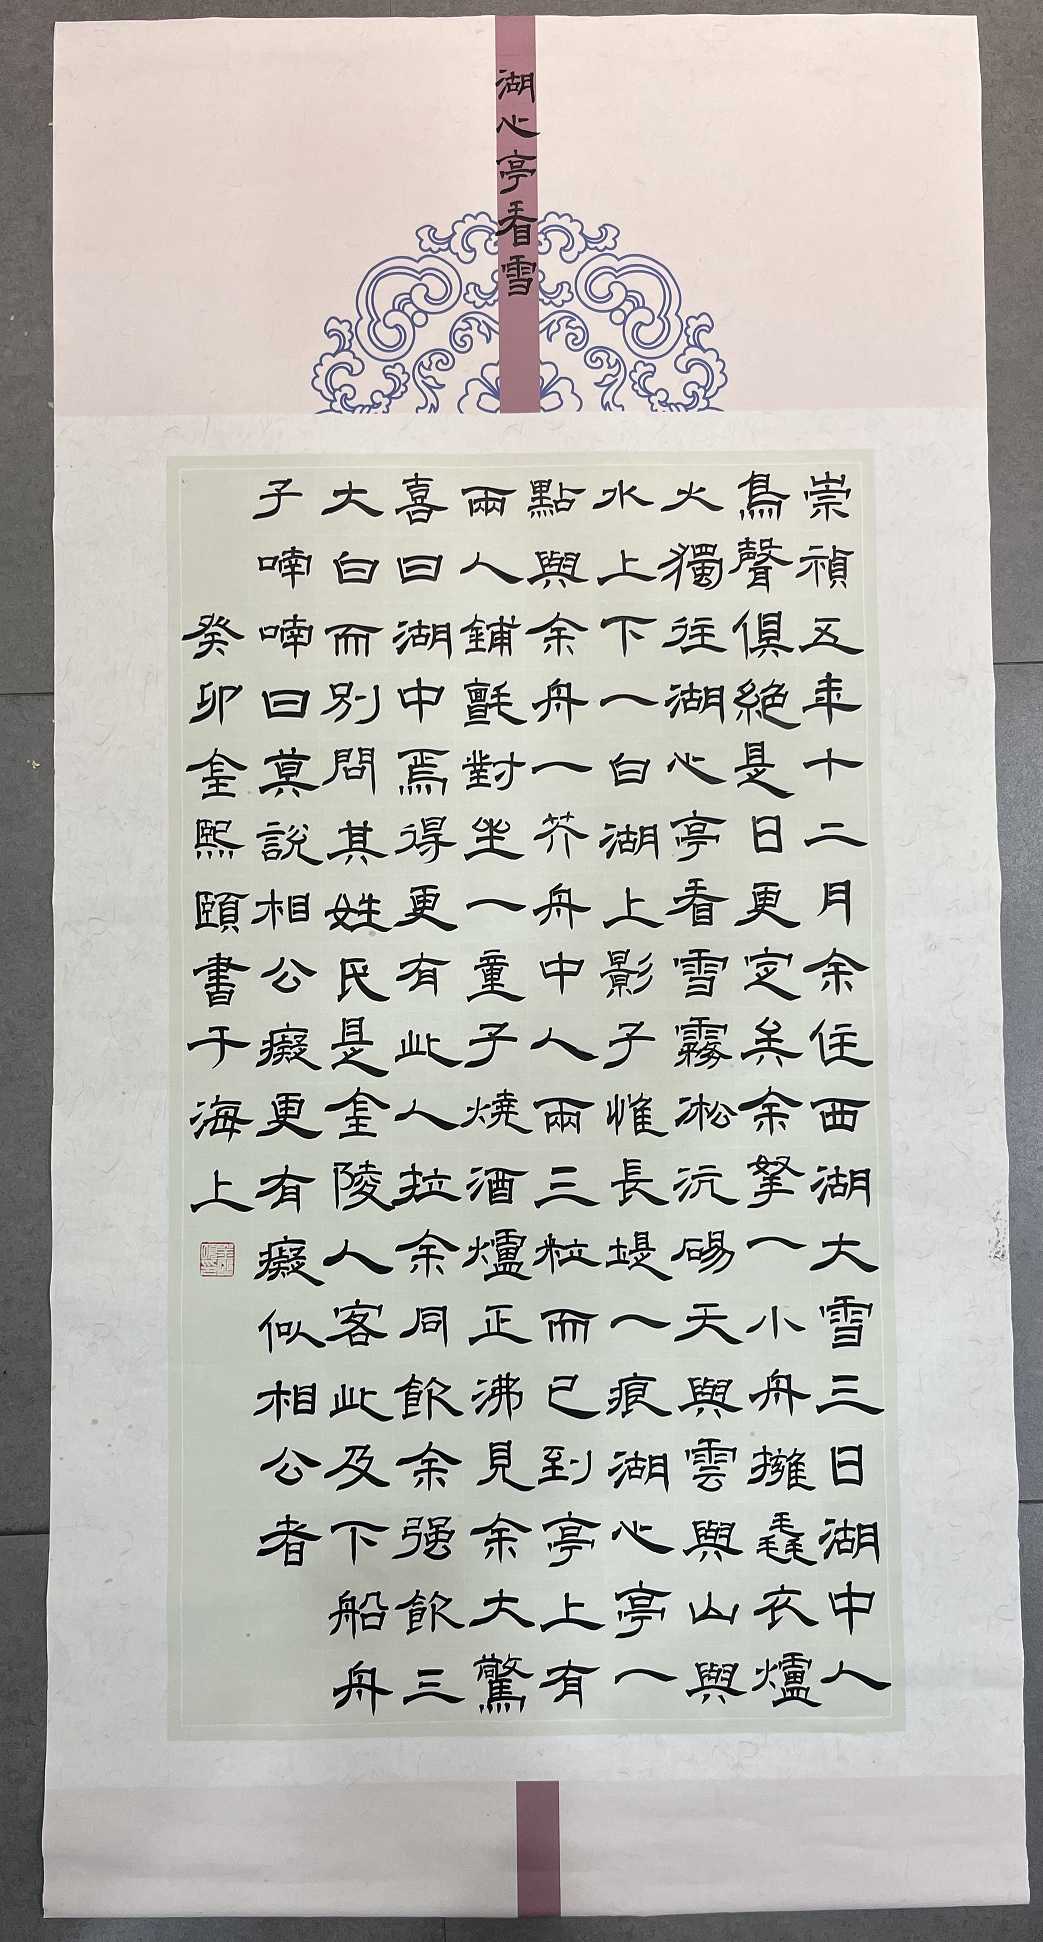 湖心亭看雪
崇禎五年十二月余住西湖大雪三日湖中人
鳥聲俱絕是日更定矣余拏一小舟擁毳衣爐
火獨往湖心亭看雪霧凇沆碭天與雲與山與
水上下一白湖上影子惟長堤一痕湖心亭一
點與余舟一芥舟中人兩三粒而已到亭上有
兩人鋪氈對坐一童子燒酒爐正沸見余大驚
喜曰湖中焉得更有此人拉余同飲余强飲三
大白而別問其姓氏是金陵人客此及下船舟
子喃喃曰莫說相公癡更有癡似相公者
癸卯金熙頤書于海上